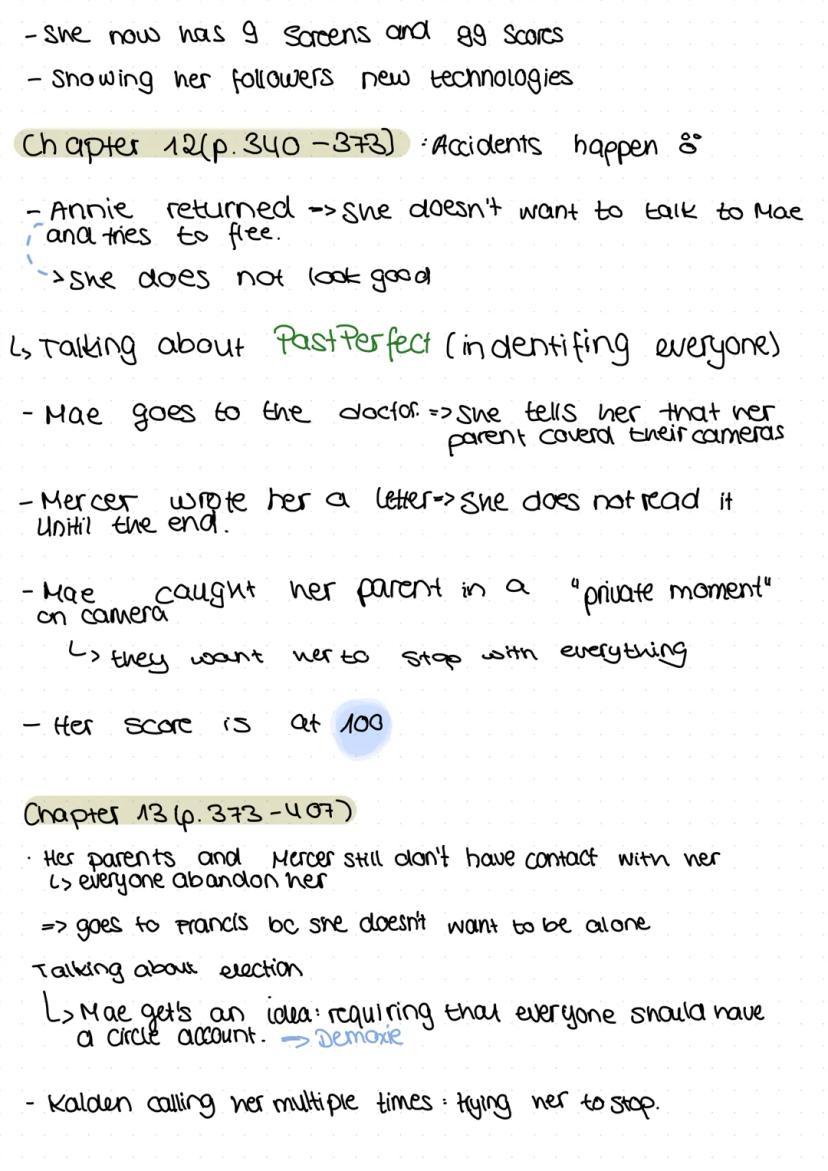 - She now has 9 Screens and 99 Scores
- Showing her followers new technologies
Chapter 12(p.340 -373) : Accidents happen
- Annie returned -> She doesn't want to talk to Mae
and tries to flee.
-> She does not look good
↳ Talking about PastPerfect (indentifing everyone)
- Mae goes to the doctor. => She tells her that her
parent coverd their cameras
- Mercer wrote her a letter-> She does not read it
Unitil the end.
- Mae caught her parent in a "private moment"
on camera
↳ they want her to stop with everything
- Her score is at 100
Chapter 13 (p.373-407)
· Her parents and Mercer still don't have contact with her
↳ everyone abandon her
=> goes to Francis bc she doesn't want to be alone
Talking about election
↳ Mae get's an idea: requiring that everyone should have
a circle account. -> Demoxie
- Kalden calling her multiple times : trying her to stop.